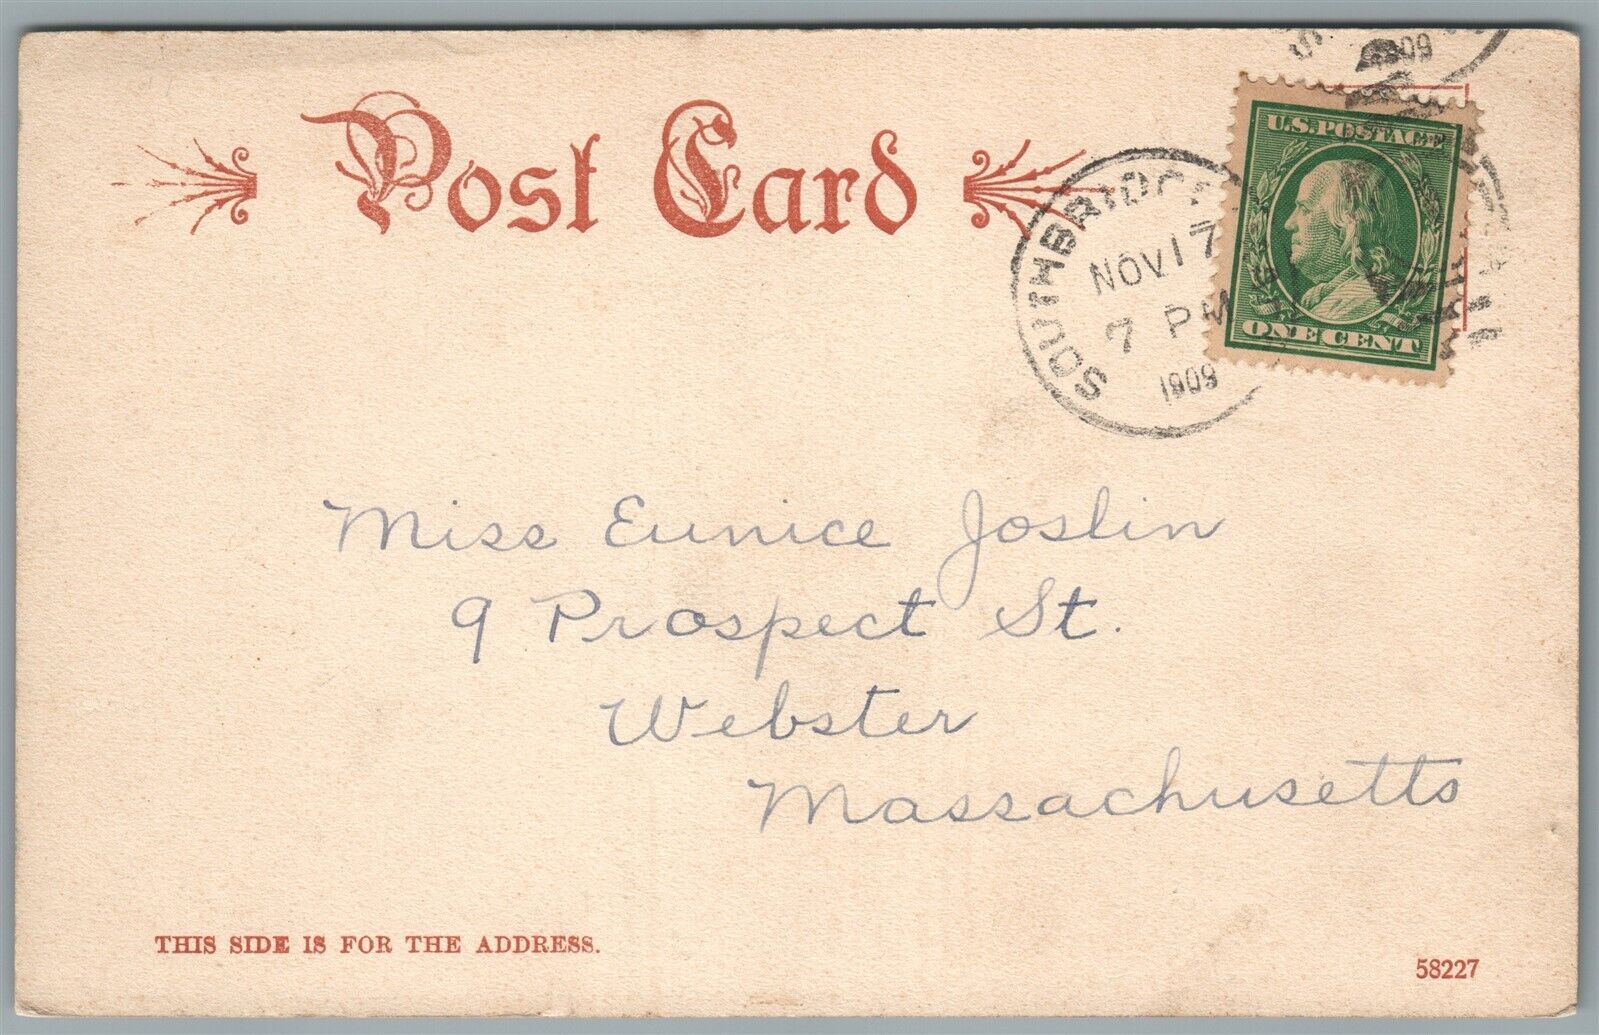 Post Card
1909
SOUTHBRIDGE
NOV 17
7 PM
1909
U.S. POSTAGE
ONE CENT
Miss Eunice Joslin
9 Prospect St.
Webster
Massachusetts
THIS SIDE IS FOR THE ADDRESS.
58227